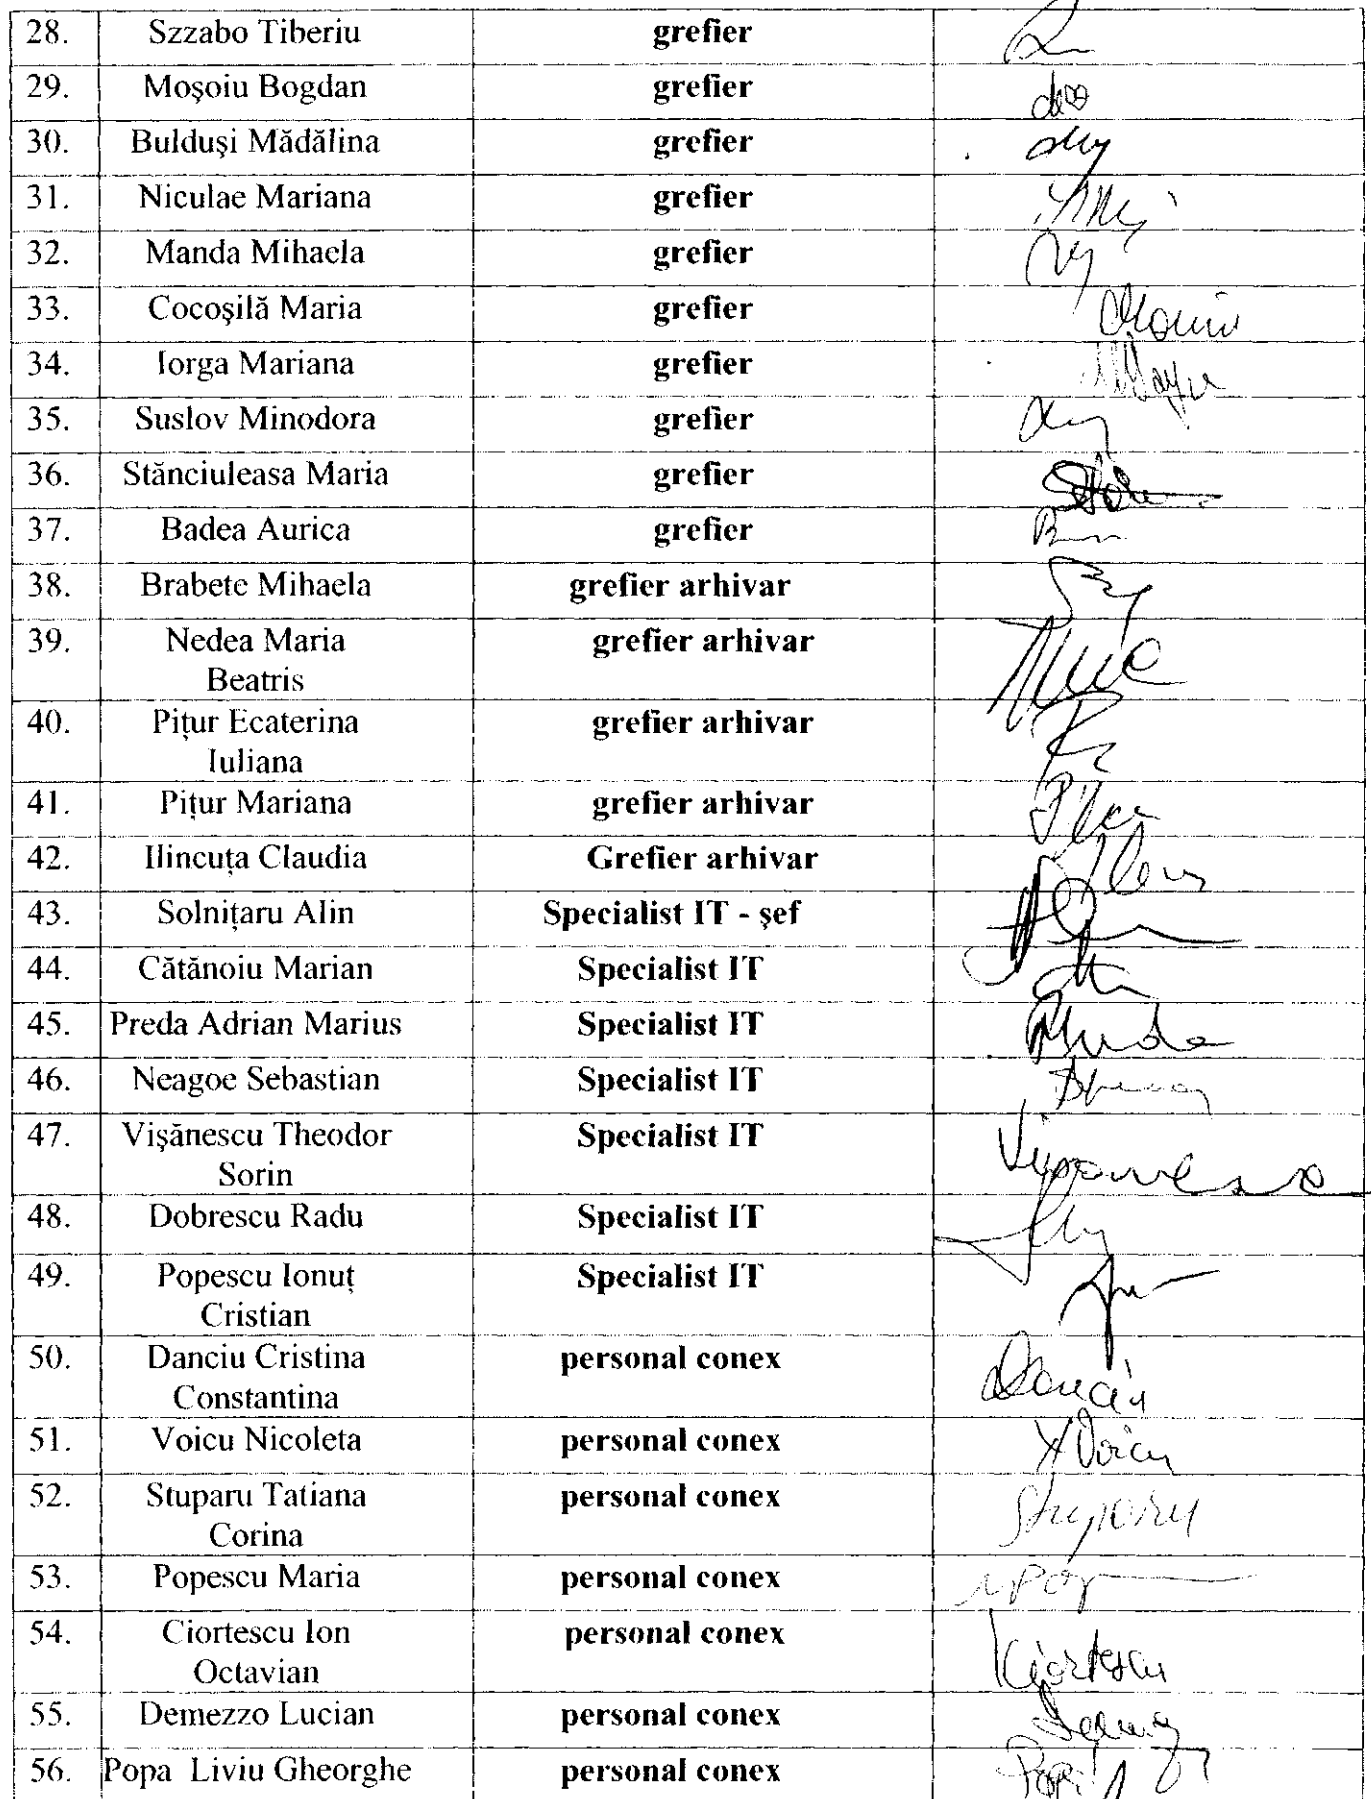 28. Szzabo Tiberiu grefier
29. Moşoiu Bogdan grefier
30. Bulduşi Mădălina grefier
31. Niculae Mariana grefier
32. Manda Mihaela grefier
33. Cocoşilă Maria grefier
34. Iorga Mariana grefier
35. Suslov Minodora grefier
36. Stănciuleasa Maria grefier
37. Badea Aurica grefier
38. Brabete Mihaela grefier arhivar
39. Nedea Maria grefier arhivar
Beatris
40. Piţur Ecaterina grefier arhivar
Iuliana
41. Piţur Mariana grefier arhivar
42. Ilincuţa Claudia Grefier arhivar
43. Solniţaru Alin Specialist IT - şef
44. Cătănoiu Marian Specialist IT
45. Preda Adrian Marius Specialist IT
46. Neagoe Sebastian Specialist IT
47. Vişănescu Theodor Specialist IT
Sorin
48. Dobrescu Radu Specialist IT
49. Popescu Ionuţ Specialist IT
Cristian
50. Danciu Cristina personal conex
Constantina
51. Voicu Nicoleta personal conex Voicu
52. Stuparu Tatiana personal conex
Corina Stuparu
53. Popescu Maria personal conex
54. Ciortescu Ion personal conex
Octavian Ciortescu
55. Demezzo Lucian personal conex
56. Popa Liviu Gheorghe personal conex